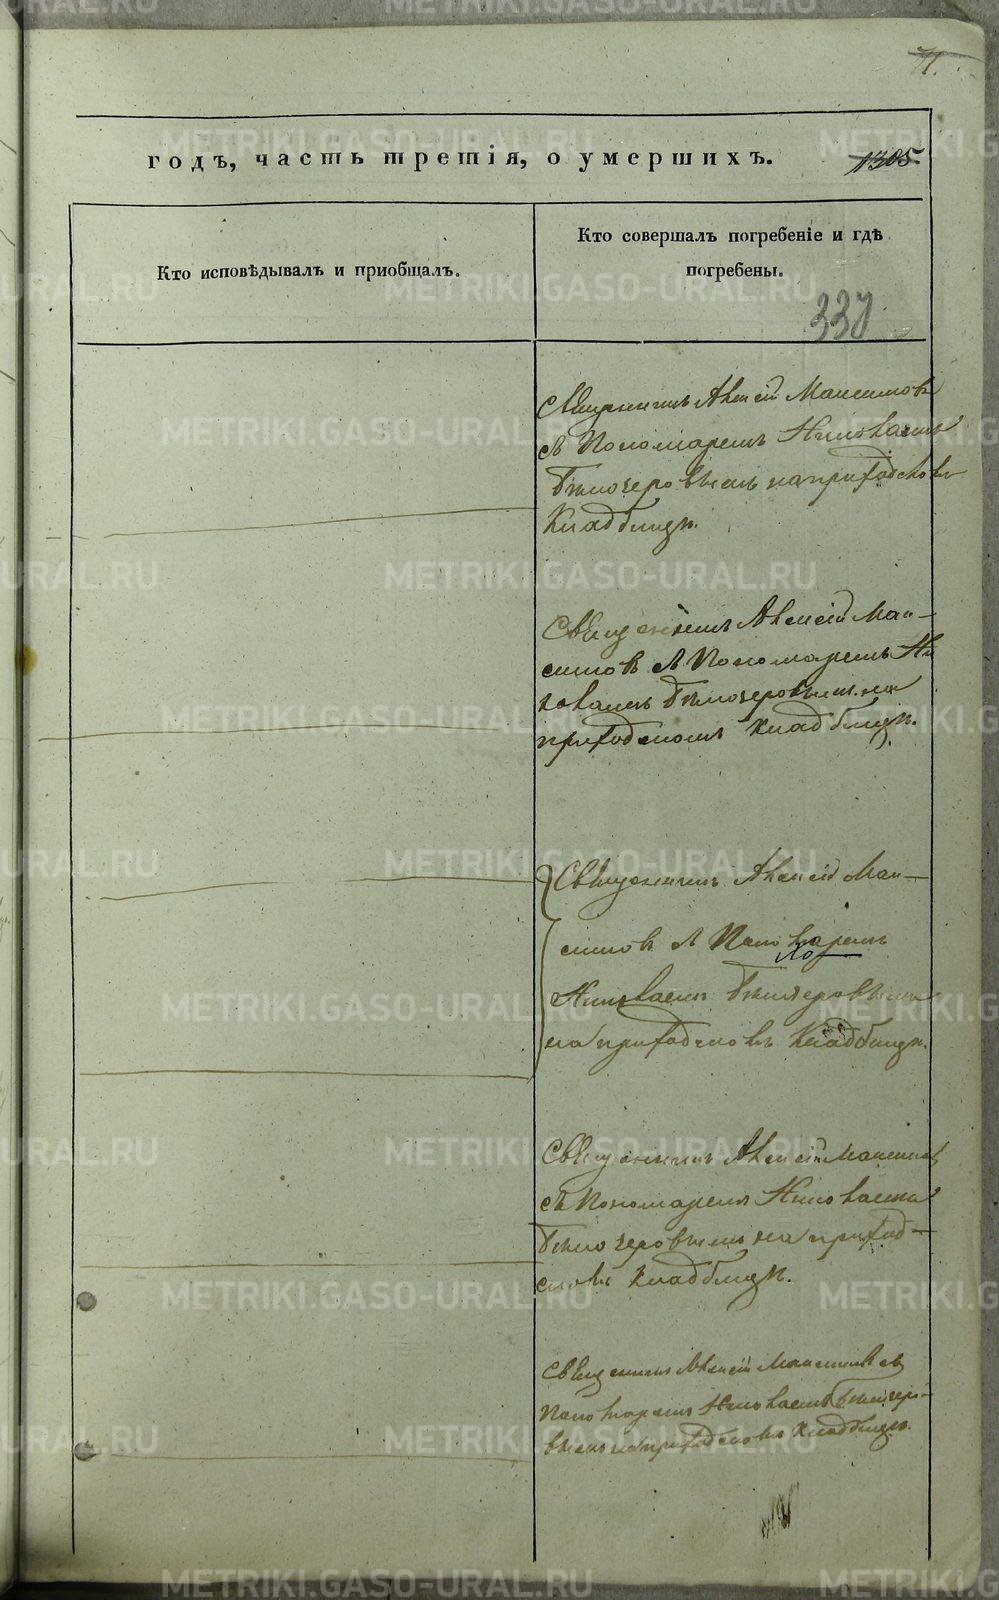 71.
годъ, часть третія, о умершихъ.
1305.
Кто исповѣдывалъ и приобщалъ.
Кто совершалъ погребеніе и гдѣ
погребены.
337
Священникъ Алексій Максимовъ
съ Пономаремъ Николаемъ
Бѣлозеровымъ на приходсковъ
Кладбищѣ.
Священникъ Алексій Мак-
симовъ съ Пономаремъ Ни
колаемъ Бѣлозеровымъ на
приходскомъ Кладбищѣ.
Священникъ Алексій Мак-
симовъ съ Пономаремъ
Николаемъ Бѣлозеровымъ
на приходсковъ Кладбищѣ.
Священникъ Алексій Максимовъ
съ Пономаремъ Николаемъ
Бѣлозеровымъ на приход-
сковъ Кладбищѣ.
Священникъ Алексій Максимовъ съ
Пономаремъ Николаемъ Бѣлозеро-
вымъ на приходсковъ Кладбищѣ.
METRIKI.GASO-URAL.RU